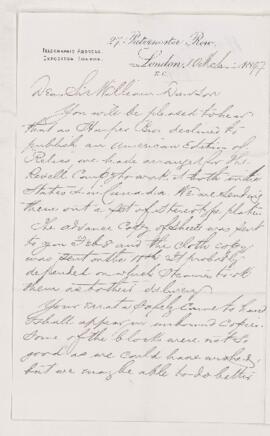 27, Paternoster Row,
TELEGRAPHIC ADDRESS,
EXPOSITOR LONDON.
London, 10 March 1887
E.C.
Dear Sir William Dawson
You will be pleased to hear
that as Harper Bros declined to
publish an American Edition of
we have arranged for the
Revell Co to work it both in the
States & in Canada We are sending
them out a set of Stereotype plates
The advance Copy of sheets was sent
to you Feb 8 and the cloth copy
was sent on the 10th It probably
depended on which Steamer took
them as to their delivery
Your errata safely came to hand
& shall appear in unbound Copies.
Some of the blocks were not so
good as we could have wished,
but we may be able to do better